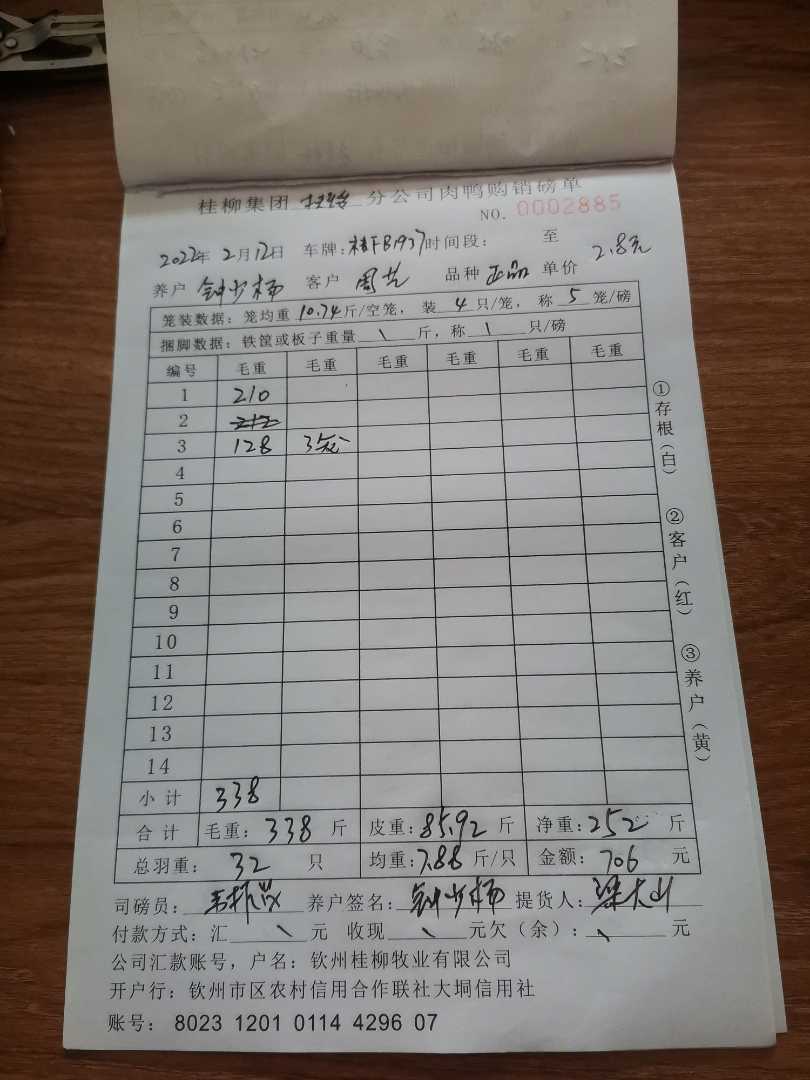 桂柳集团 分公司肉鸭购销磅单
NO. 0002885
2022年 2月12日 车牌:桂FB1937时间段: 至
养户 钟少杨 客户 周艺 品种 正品 单价 2.8元
笼装数据:笼均重10.74斤/空笼, 装 4 只/笼, 称 5 笼/磅
捆脚数据:铁筐或板子重量 \ 斤,称 \ 只/磅
编号 毛重 毛重 毛重 毛重 毛重 毛重
1 210
2 212
3 128 3笼
4
5
6
7
8
9
10
11
12
13
14
小计 338
合计 毛重: 338 斤 皮重:85.92 斤 净重:252 斤
总羽重: 32 只 均重:7.88 斤/只 金额: 706 元
司磅员: 养户签名: 钟少杨 提货人: 梁大山
付款方式:汇 \ 元 收现 \ 元欠(余): \ 元
公司汇款账号,户名:钦州桂柳牧业有限公司
开户行:钦州市区农村信用合作联社大垌信用社
账号: 8023 1201 0114 4296 07
①存根(白)
②客户(红)
③养户(黄)